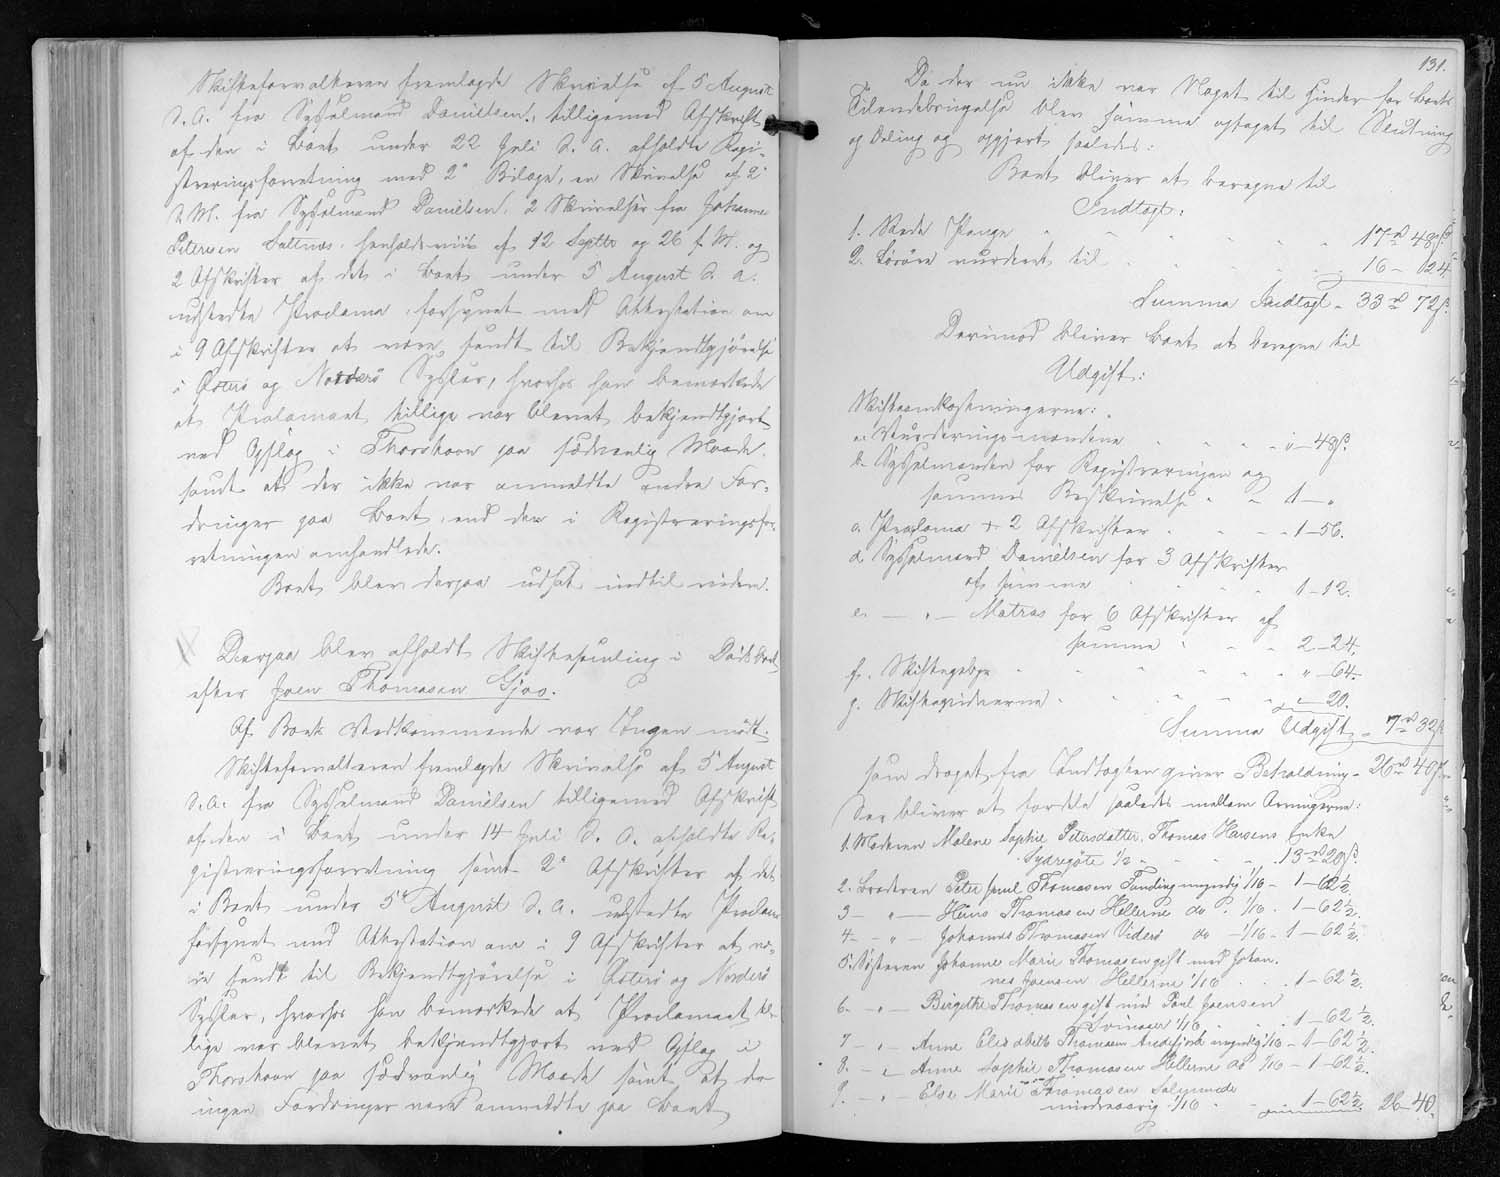 Skifteforvalteren fremlagde Skrivelse af 5 August
d. A. fra Sysselmand Danielsen, tilligemed Afskrift
af den i Boet under 22 Juli d. A. afholdte Regi-
streringsforretning med 2de Bilage, en Skrivelse af 2de
d. M. fra Sysselmand Danielsen, 2 Skrivelser fra Johannes
Petersen Saltnæs henholdsviis af 12 Septbr og 26 f. M. og
2 Afskrifter af det i Boet under 5 August d. A.
udstedte Proclama, forsynet med Attestation om
i 9 Afskrifter at være sendt til Bekjendtgjørelse
i Østerø og Norderø Sysler, hvorhos han bemærkede
at Proclamaet tillige var blevet bekjendtgjort
ved Opslag i Thorshavn paa sædvanlig Maade,
samt at der ikke var anmeldte andre For-
dringer paa Boet, end den i Registreringsfor-
retningen omhandlede.
Boet blev derpaa udsat indtil videre.
Derpaa blev afholdt Skiftesamling i Dødsboet
efter Joen Thomasen Gjov.
Af Boets Vedkommende var Ingen mødt.
Skifteforvalteren fremlagde Skrivelse af 5 August
d. A. fra Sysselmand Danielsen tilligemed Afskrift
af den i Boet under 14 Juli d. A. afholdte Re-
gistreringsforretning samt 2de Afskrifter af det
i Boet under 5te August d. A. udstedte Proclama
forsynet med Attestation om i 9 Afskrifter at væ-
re sendt til Bekjendtgjørelse i Østerø og Norderø
Sysler, hvorhos han bemærkede at Proclamaet til-
lige var blevet bekjendtgjort ved Opslag i
Thorshavn paa sædvanlig Maade samt at der
ingen Fordringer vare anmeldte paa Boet
131.
Da der nu ikke var Noget til Hinder for Boets
Tilendebringelse blev samme optaget til Slutning
og Deling og opgjort saaledes:
Boet bliver at beregne til
Indtægt:
1. Rede Penge 17 rd 48 ß.
2. Løsøre vurderet til 16 - 24
Summa Indtægt - 33 rd 72 ß.
Derimod bliver Boet at beregne til
Udgift:
Skifteomkostningerne:
a. Vurderingsmændene " - 48 ß.
b. Sysselmanden for Registreringen og
sammes Beskrivelse 1 - "
c. Proclama + 2 Afskrifter 1 - 56.
d. Sysselmand Danielsen for 3 Afskrifter
af samme 1 - 12.
e. — " — Matras for 6 Afskrifter af
samme 2 - 24.
f. Skiftegebyr " - 64.
g. Skifteviderne " - 20.
Summa Udgift - 7 rd 32 ß
som draget fra Indtægten giver Beholdning - 26 rd 40 ß.
Der bliver at fordele saaledes mellem Arvingerne:
1. Moderen Malene Sophie Petersdatter, Thomas Hansens Enke
Sydregøte 1/2 13 rd 20 ß.
2. Broderen Peter Poul Thomasen Funding myndig 1/16 - 1 - 62 1/2.
3 - " — Heins Thomasen Hellerne do 1/16 . 1 - 62 1/2.
4 - - " - Johannes Thomasen Viderø do - 1/16 - 1 - 62 1/2.
5. Søsteren Johanne Marie Thomasen gift med Johan-
nes Joensen Hellerne 1/16 1 - 62 1/2.
6. - " - Birgithe Thomasen gift med Poul Joensen
1/16 1 - 62 1/2.
7 - " - Anne Elisabeth Thomasen Andefjord myndig 1/16 - 1 - 62 1/2.
8. - " Anne Sophie Thomasen Hellerne do 1/16 - 1 - 62 1/2.
9. - " Else Marie Thomasen
mindreaarig 1/16 1 - 62 1/2. 26 - 40.